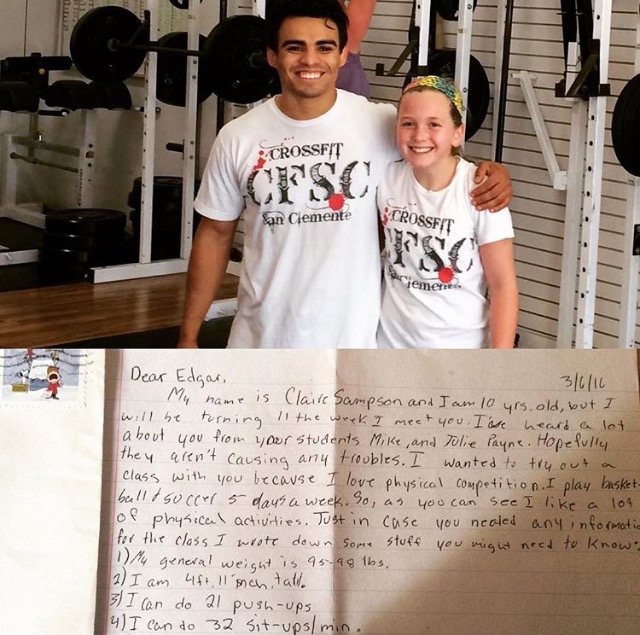 CROSSFIT
CFSC
San Clemente
CROSSFIT
CFSC
Clemente
3/6/16
Dear Edgar,
My name is Claire Sampson and I am 10 yrs. old, but I
will be turning 11 the week I meet you. I've heard a lot
about you from your students Mike, and Julie Payne. Hopefully
they aren't causing any troubles. I wanted to try out a
class with you because I love physical competition. I play basket-
ball & soccer 5 days a week. So, as you can see I like a lot
of physical activities. Just in case you needed any informatio
for the class I wrote down some stuff you might need to know:
1) My general weight is 95-98 lbs.
2) I am 4ft. 11 inch, tall.
3) I can do 21 push-ups
4) I can do 32 sit-ups/min.